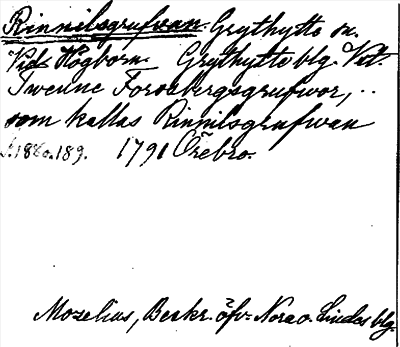 Rinnilsgrufvan. Grythytte sn.
Vid Högborn. Grythytte blg. Vstl.
Twenne Forssbergsgrufwor, ..
som kallas Rinnilsgrufwan
s. 188o.189. 1791 Örebro.
Mozelius, Beskr. öfv. Nora o. Lindes blg.